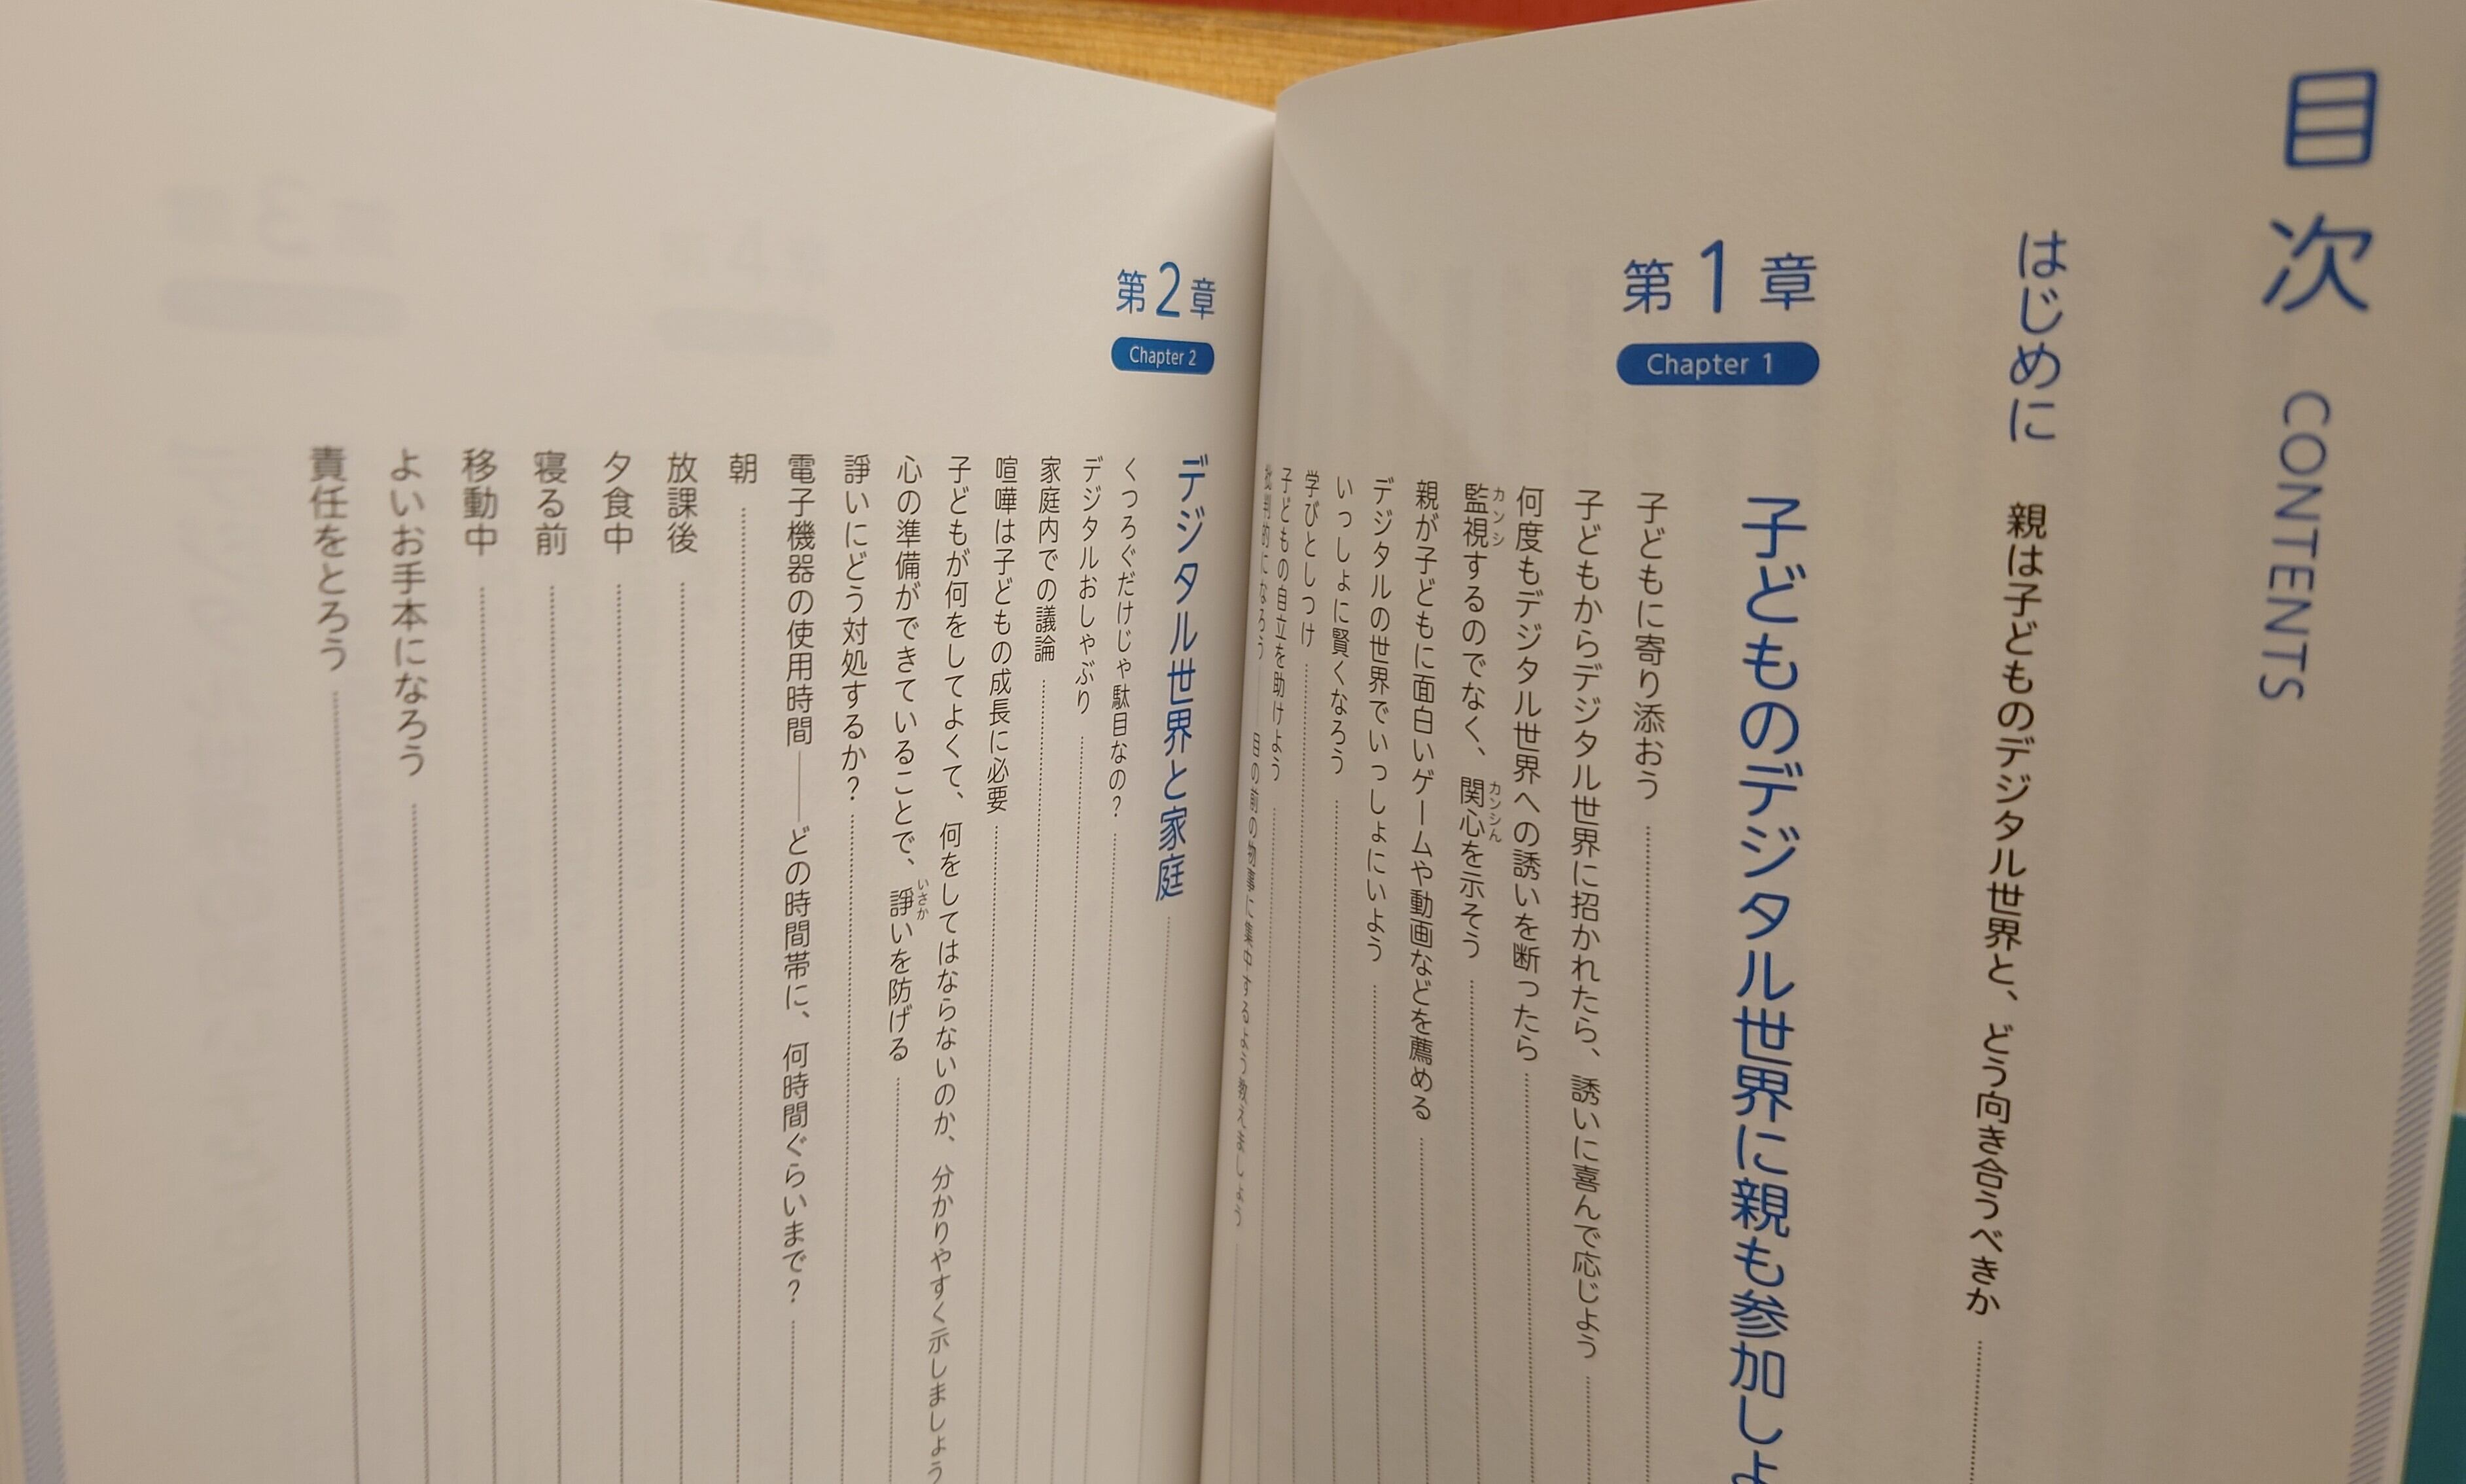 目次 CONTENTS
はじめに 親は子どものデジタル世界と、どう向き合うべきか
第1章
Chapter 1
子どものデジタル世界に親も参加しよ
子どもに寄り添おう
子どもからデジタル世界に招かれたら、誘いに喜んで応じよう
何度もデジタル世界への誘いを断ったら
監視するのでなく、関心を示そう
カンシ
カンシん
親が子どもに面白いゲームや動画などを薦める
デジタルの世界でいっしょにいよう
いっしょに賢くなろう
学びとしつけ
子どもの自立を助けよう
批判的になろう――目の前の物事に集中するよう教えましょう
第2章
Chapter 2
デジタル世界と家庭
くつろぐだけじゃ駄目なの？
デジタルおしゃぶり
家庭内での議論
喧嘩は子どもの成長に必要
子どもが何をしてよくて、何をしてはならないのか、分かりやすく示しましょう
心の準備ができていることで、諍いを防げる
いさか
諍いにどう対処するか？
電子機器の使用時間――どの時間帯に、何時間ぐらいまで？
朝
放課後
夕食中
寝る前
移動中
よいお手本になろう
責任をとろう